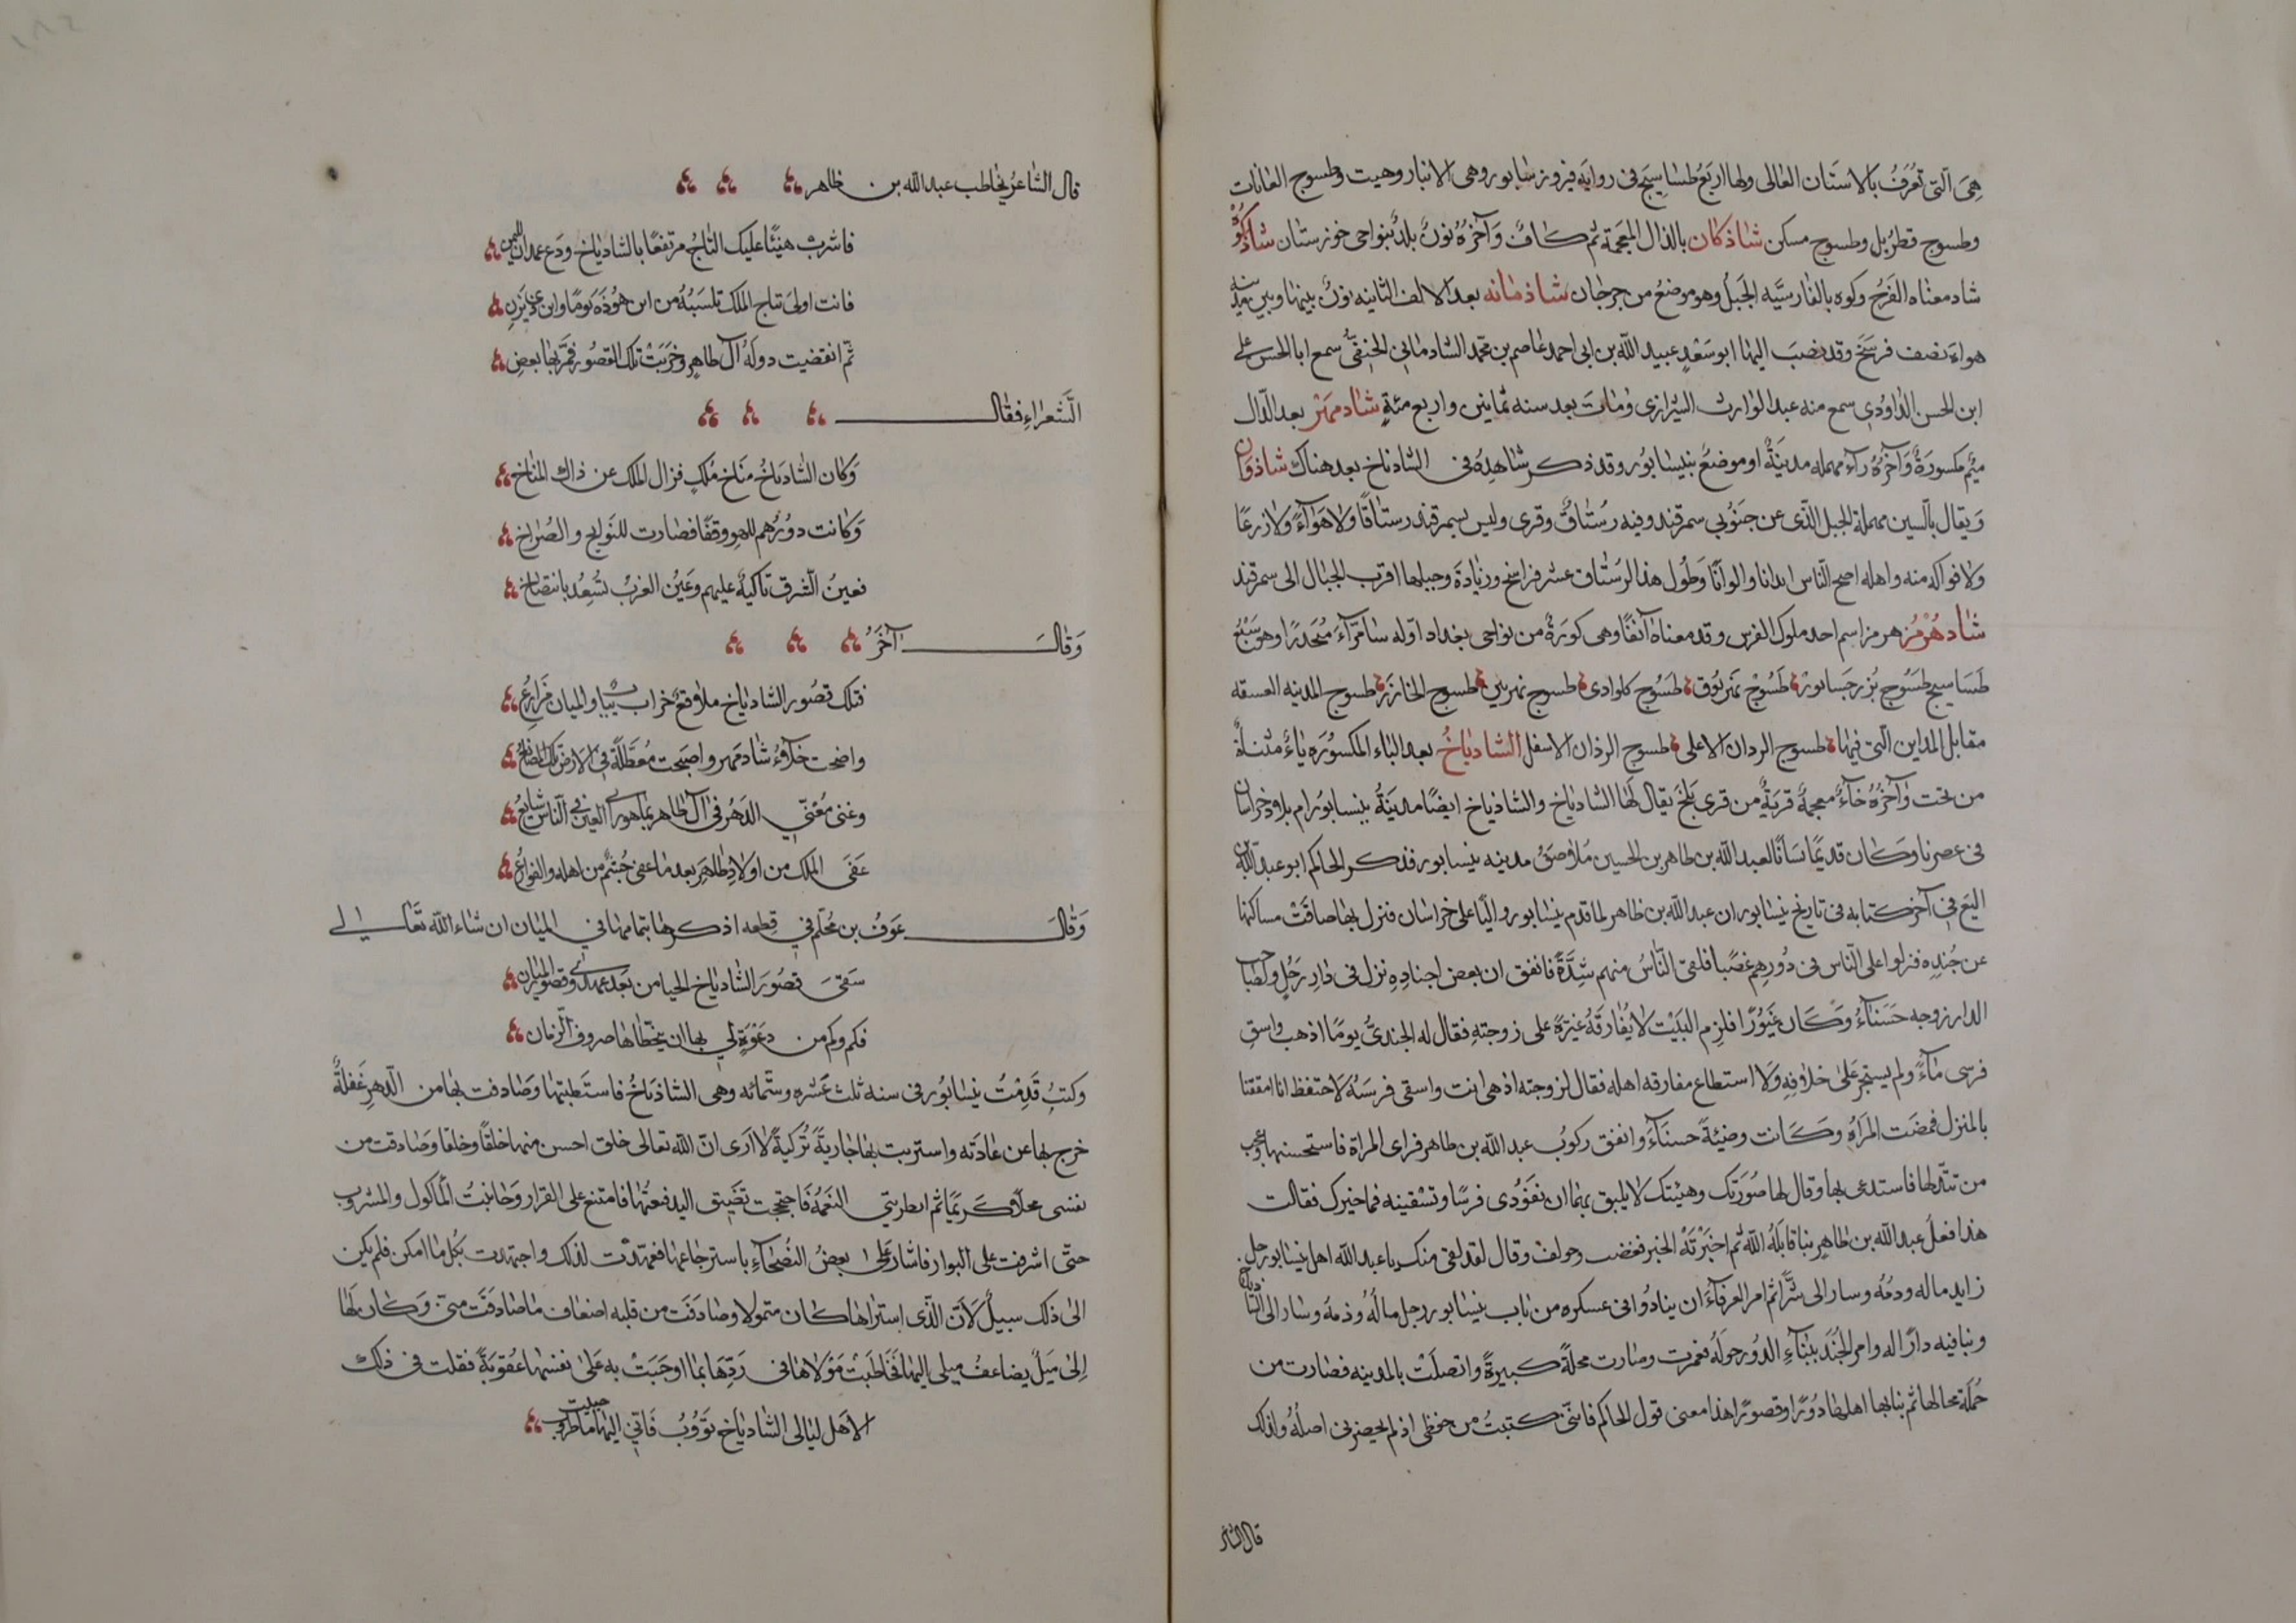 هِىَ الّتى تُعْرَفُ بالاستَان العَالى ولها اربَعُ طسَاسِيج فى روايَه فيروز سابور وهى الانبار وهيت وطسوج العانات
وطسوج قطرُبل وطسوج مسكن شاذكان بالذال المعجمَة ثم كافٌ وَآخرُهُ نونٌ بلدٌ بنواحى خوزستان شاذكُوْه
شاد معناه الفَرَحُ وكوه بالفارسيَّه الجَبَلُ وهو موضعٌ من جرجان شاذمانه بعد الالف الثانيه نونٌ بينها وبين مدينه
هراةَ نصف فرسَخ وقد نصبَ اليها ابو سَعْدٍ عبيد اللّه بن ابى احمد عاصم بن محمد الشادمانى الحنفىُّ سمع ابا الحسن على
ابن الحسن الدّاودى سمع منه عبد الوارث الشيرازى ومات بعد سنه ثمانين واربع مئةٍ شادمِهَر بعد الدّال
مِيْم مكسورَةٌ وَآخرُهُ رآء مهمله مدينَةٌ او موضعٌ بنيسابور وقد ذكر شاهِدُهُ فى الشادياخ بعد هناك شاذوَان
وَيقال بالسين مهملة الجبل الذّى عن جنُوبى سمرقند وفيه رُستاقٌ وقرى وليس بسمرقند رستاقًا ولا هوآءً ولا زرعًا
ولا فواكه منه واهله اصح الناس ابدانا والوانًا وَطُول هذا الرُستاق عشر فراسخ وزيادة وجبلها اقرب الجبال الى سمرقند
شادهُرْمُز هرمز اسم احد ملوك الفرس وقد معناه آنفًا وهى كورَةٌ من نواحى بغداد اوّله سامرّآءَ مُنحَدرًا وهو سَبْعُ
طسَاسيج طسَّوج بُزرجسابور طَسُوْج نَهر بُوق طسُوج كلواذى طسوج نهر بين طسوج الخازر طسوج المدينه العتيقه
مقابل المداين الّتى فيها طسوج الردان الاعلى طسوج الرذان الاسفل الشادياخُ بعد الباء المكسُورَه ياءٌ مثناةٌ
من تحت وآخرُهُ خآءٌ معجمةٌ قريَةٌ من قرى بَلخَ يقال لهَا الشادياخ والشاذياخ ايضًا مدينَةُ نيسابوُر ام بلاد خراسان
فى عصرنا وَكان قديمًا بستانًا لعبد الله بن طاهر بن الحسين مُلاصِقُ مدينه نيسابور فذكر الحاكم ابو عبد اللّه بن
البَيّع فى آخر كتابه فى تاريخ نيسابور ان عبد اللّه بن طاهر لما قدم نيسابور واليًا على خراسان فنزل بها ضاقَتْ مساكنها
عن جُندِه فنزلوا على النّاس فى دُورهِم غصْبًا فلقى النّاسُ منهم شِدَّةً فاتفق ان بعض اجنادِهِ نزل فى دارِ رَجُلٍ ولصاحب
الدار زوجه حَسَناءُ وكَان غَيُوْرًا فلزِم البَيْت لا يُفَارقهُ غيَرَةً على زوجتِهِ فقال له الجندىُّ يومًا اذهب واسقِ
فرسى مَآءً ولم يستجر عَلى خلافهِ وَلا استطاع مفارقه اهله فقال لزوجته اذهبى انت واسقى فرسَهُ لاحتفظ انا امتعتنا
بالمنزل فمضَت المَرأهُ وَكَانت وضيْئَةً حسنَآءَ واتفق ركوبُ عبد اللّه بن طاهر فراى المراة فاستحسنها وعجب
من تبذّلها فاستدعى بها وقال لها صُورَتك وهيْئتك لا يليق بهمَا ان تقوْدى فرسًا وتسْقينه فما خبرك فقالت
هذا فعلُ عبد اللّه بن طاهِر بنا قاتلَهُ اللّهُ ثم اخبَرتَهُ الخبر فغضب وحولق وقال لقد لقى منك يا عبد اللّه اهل نيسابور
زايد ماله ودمُه وسار الى شرًّا ثم امر العرفآءَ ان ينادُوا فى عسكره من بات بنيسابور رجل مالُهُ وذمهُ وسار الى الشادياخ
وبنا فيه دارًا له وامر الجُنَدَ ببنآءِ الدُوْر حولَهُ فعمرت وصارت محلَّةً كبيرةً واتصلَتْ بالمدينه فصَارت من
جُملَة محالها ثم بنا بها اهلها دُورًا وقصورًا هذا معنى قول الحاكم فانّنى كتبتُ من حفظى اذ لم يحضرنى اصلُهُ ولذلك
قال الشاعر
قال الشاعرُ يخاطب عبد اللّه بن طاهر
فاشربْ هنيئًا عليك التاجُ مرتفعًا بالشادياخ ودَع غمدان لليمن
فانت اولىَ بتاج الملك تلبَسُهُ من ابن هوُذَه يومًا وابن ذى يَزَنِ
ثّم انقضيت دولَهُ آل طاهِرٍ وخَرَبَتْ تلك القصُور فمَّر بها بعض
الشّعرَاءِ فقال
وَكان الشّادياخُ مَنَاخ مُلكٍ فزال الملك عن ذاك المناخ
وَكانت دورُهم للهوِ وقفًا فصَارت للنَوايح والصُراخ
فعينُ الّشرق باكيةٌ عليهم وعَيْنُ الغربْ تُسْعِدُ بانتضاخ
وَقَالَ آخَرُ
فتلك قصُور الشادياخ بلاقعٌ خراب يبابٌ والميان مَزارِعُ
واضحت خلآءً شادمهر واصبَحت مُعَطَّلةً فى الارض تلك المصانعُ
وغنى مُغنّى الدَهْر فى آل طاهر بما هو راى العين فى النّاس شايعُ
عَفَى الملك من اولادِ طاهِرِ بعد ما عفى جُشَمٌ من اهله والفوارِعُ
وَقَالَ عَوفُ بن مُحلّم فى قِطعه اذكرها بتمامها فى الميان ان شاء اللّه تَعَالى
سَقىَ قصُورَ الشّادياخ الحيا من بَعد عهدى وقصور الميان
فكم وكم من دَعْوَةٍ لى بها ان يتخطاها صروف الّزمان
وكنتُ قَدِمْتُ نيسَابُور فى سنه ثلث عَشره وستّمائه وهى الشاذيَاخُ فاستَطبتها وصَادفت بها من الدّهرِ غَفلةٌ
خرج بها عن عَادَته واشتريت بها جَاريَةً تُرْكيةً لا اَرى انّ اللّه تعالى خلق احسن منها خلقًا وخلقا وَصَادفت من
نفسى محلّاً كَريمًا ثم ابطرتنى النعَمةُ فاحتججت بضَيق اليد فبعتُها فامتنع على القرار وَجانبتُ المَأكول والمشروب
حتّى اشرفت على البوار فاشار عَلىَّ بعضُ النُصَحآءِ باسترجَاعها فعمدْت لذلك واجتهدت بكُل ما امكن فلم يكن
الى ذلك سبيلٌ لَاَنّ الذّى اشتراها كان متمولا وصَادَفَت من قلبه اضعاف ما صَادَفَت منّى وَكان لَهَا
اِلىَّ مَيَلٌ يضاعفُ ميلى اليها فخاطَبَت مَوْلاها فى رَدِّهَا بما اوجَبَتْ به عَلىٰ نفسها عُقوبَةً فقلت فى ذلك
الا هَل ليَالى الشّادياخ تؤوُبُ فَانى اليها ما حييت طروب